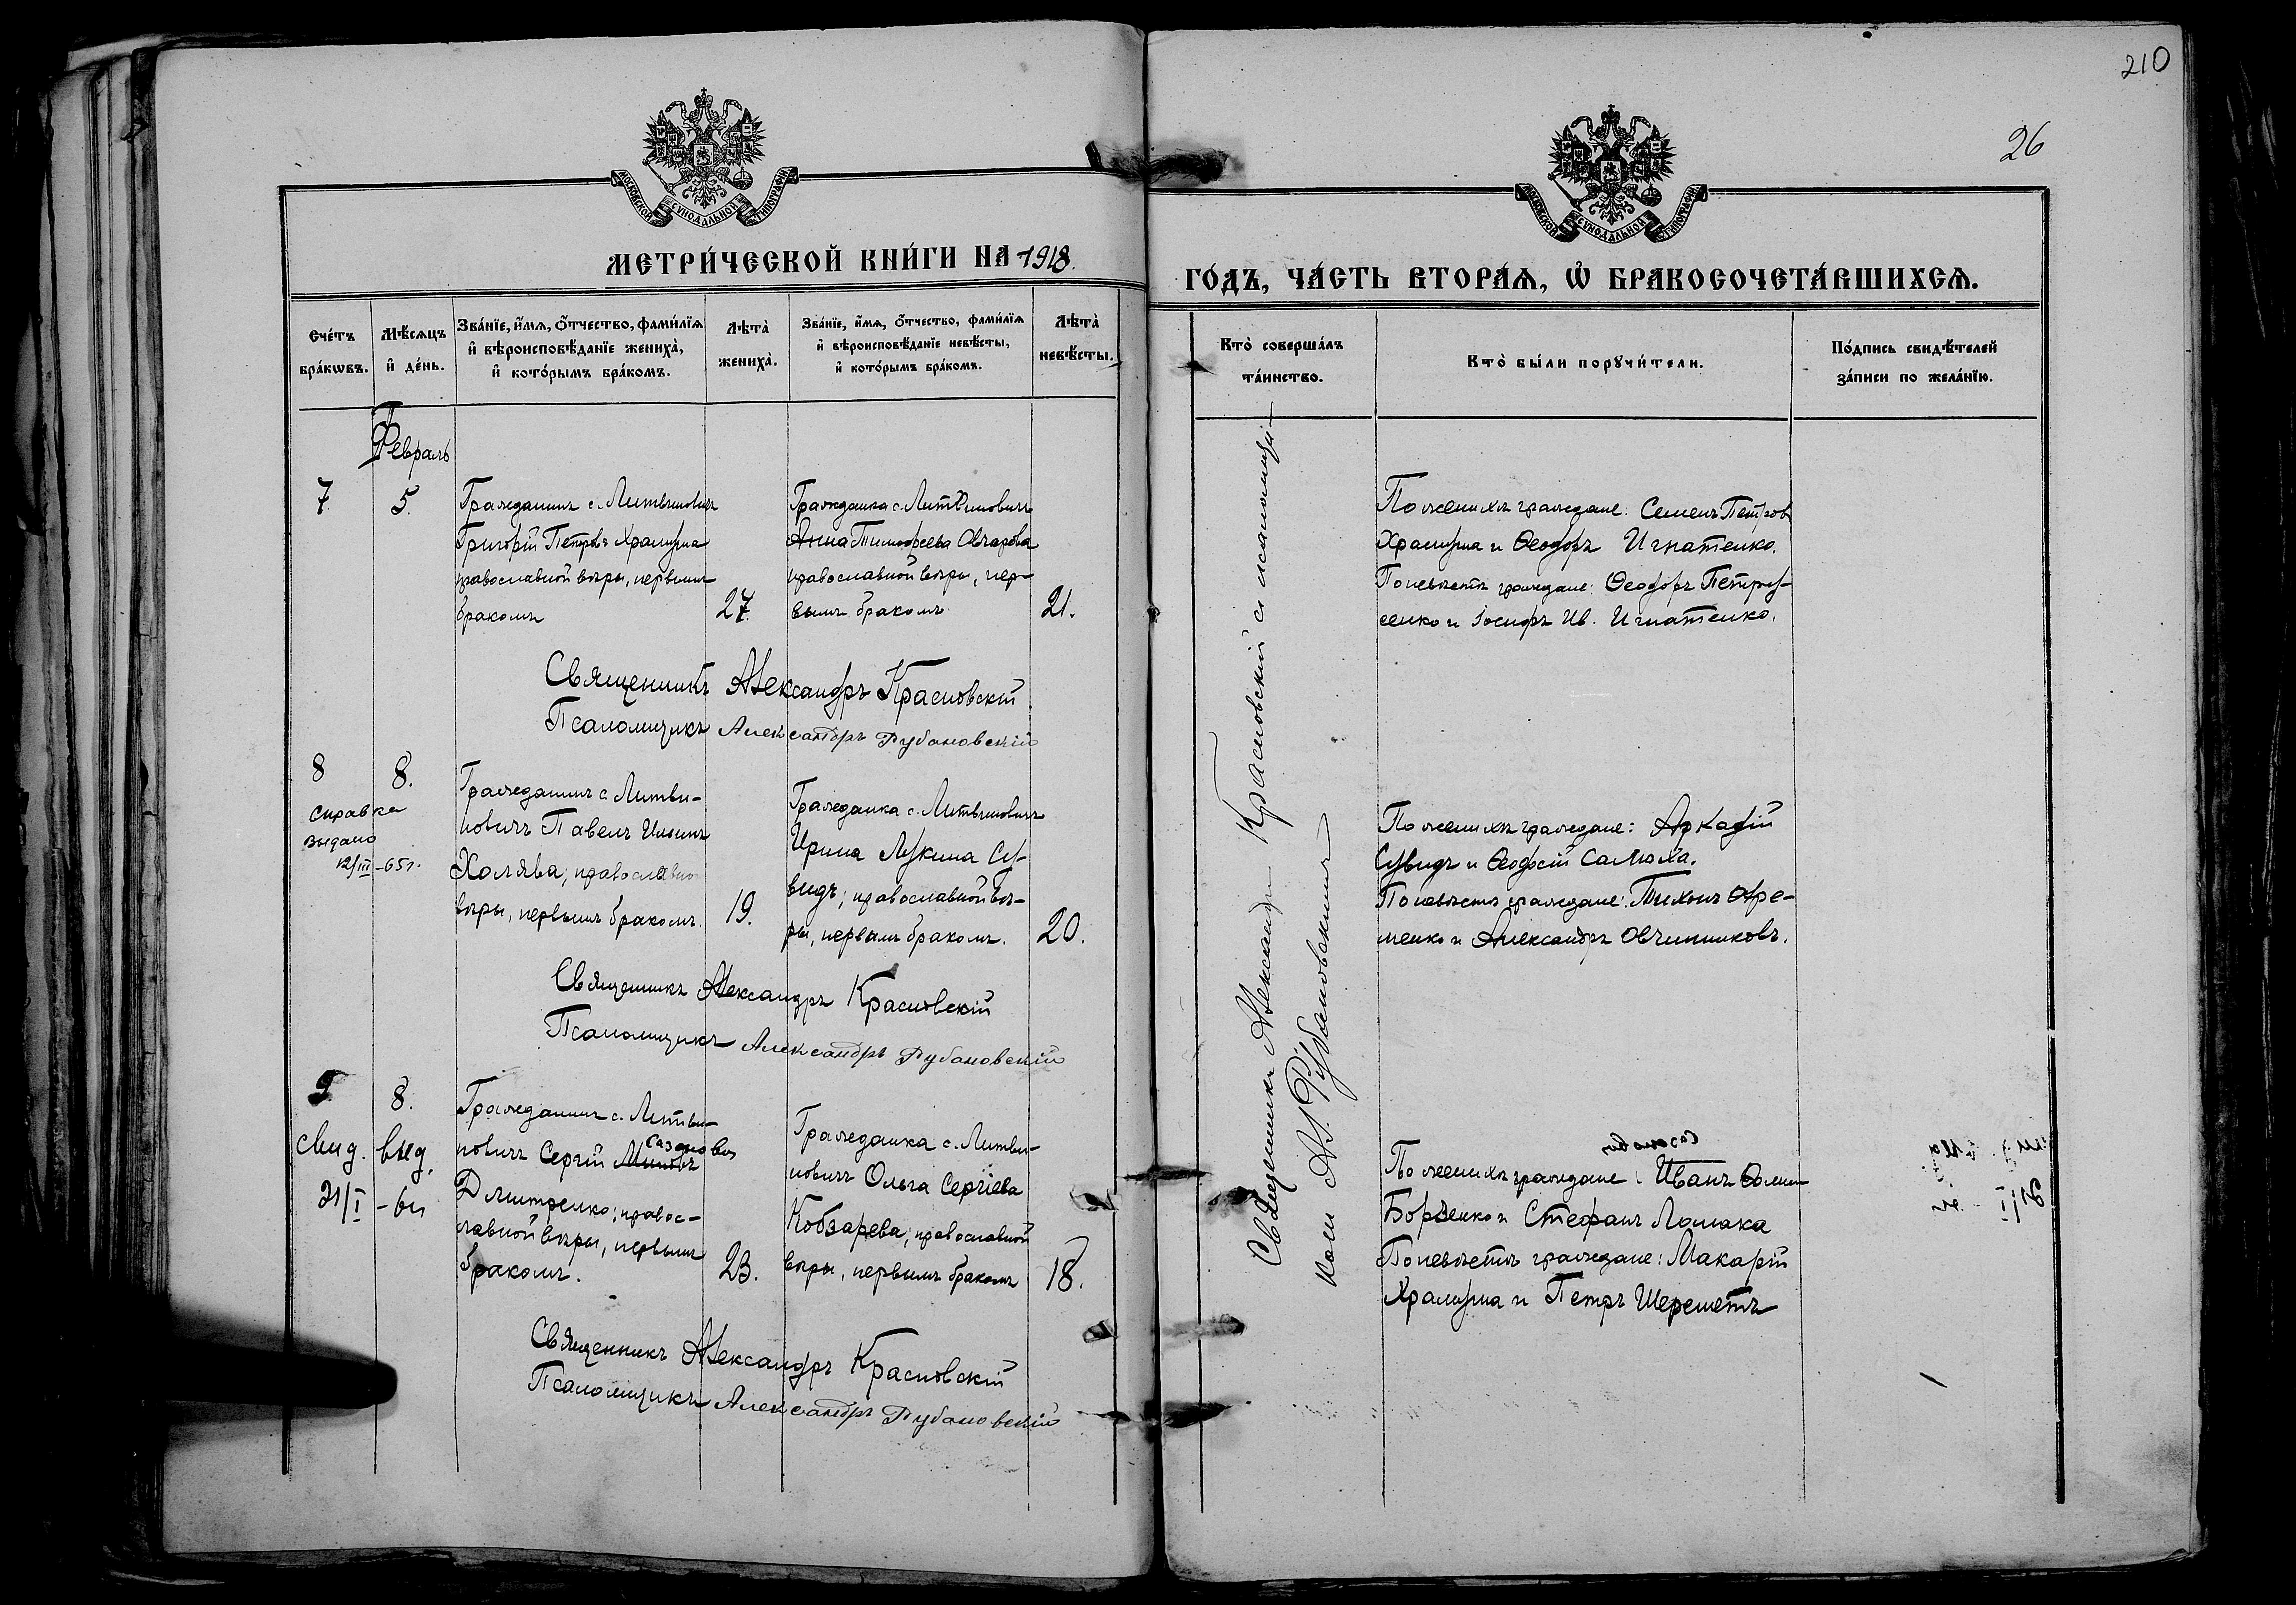 210
26
МОСКОВСКОЙ СУНОДАЛЬНОЙ ТИПОГРАФІИ
МОСКОВСКОЙ СУНОДАЛЬНОЙ ТИПОГРАФІИ
МЕТРИ́ЧЕСКОЙ КНИ́ГИ НА 1918.
ГО́ДЪ, ЧА́СТЬ ВТОРА́Ѧ, Ѡ҆ БРАКОСОЧЕТА́ВШИХСѦ.
Сче́тъ бра́кѡвъ.
Мѣ́сѧцъ и҆ де́нь.
Зва́нїе, и҆́мѧ, ѻ҆́тчество, фами́лїѧ
и҆ вѣроисповѣ́данїе жениха̀,
и҆ кото́рымъ бра́комъ.
Лѣта̀ жениха̀.
Зва́нїе, и҆́мѧ, ѻ҆́тчество, фами́лїѧ
и҆ вѣроисповѣ́данїе невѣ́сты,
и҆ кото́рымъ бра́комъ.
Лѣта̀ невѣ́сты.
Кто̀ соверша́лъ та́инство.
Кто̀ бы́ли порꙋчи́тели.
По́дпись свидѣ́телей за́писи по жела́нїю.
Февраль
7.
5.
Гражданинъ с. Литвиновичъ
Григорій Петровъ Храмуша
православной вѣры, первымъ
бракомъ
27.
Гражданка с. Литвиновичъ
Анна Тимофеева Овчарова
православной вѣры, пер-
вымъ бракомъ
21.
По женихѣ граждане: Семенъ Петров
Храмуша и Ѳеодоръ Игнатенко.
По невѣстѣ граждане: Ѳеодоръ Петру-
сенко и Іосифъ Ив. Игнатенко.
Священникъ Александръ Красновскій
Псаломщикъ Александръ Рубановскій
8
8.
Справка
выдано
12/III-65г.
Гражданинъ с. Литви-
новичъ Павелъ Ильинъ
Холява; православной
вѣры, первымъ бракомъ.
19.
Гражданка с. Литвиновичъ
Ирина Лукина Су-
видъ; православной вѣ-
ры, первымъ бракомъ.
20.
По женихѣ граждане: Аркадій
Сувидъ и Ѳеодосій Самоха.
По невѣстѣ граждане: Тихонъ Ефре-
менко и Александръ Овчинниковъ.
Священникъ Александръ Красновскій
Псаломщикъ Александръ Рубановскій
9.
8.
Свид. выд.
21/I - 61
Гражданинъ с. Литви-
новичъ Сергій Сазоновъ
Дмитренко; правос-
лавной вѣры, первымъ
бракомъ.
23.
Гражданка с. Литви-
новичъ Ольга Сергіева
Кобзарева; православной
вѣры, первымъ бракомъ
18.
Сазоновъ
По женихѣ граждане: Иванъ
Борзенко и Стефанъ Ломака
По невѣстѣ граждане: Макарій
Храмуша и Петръ Шереметъ
Священникъ Александръ Красновскій
Псаломщикъ Александръ Рубановскій
Священникъ Александръ Красновскій съ псаломщи-
комъ Ал. Рубановскимъ